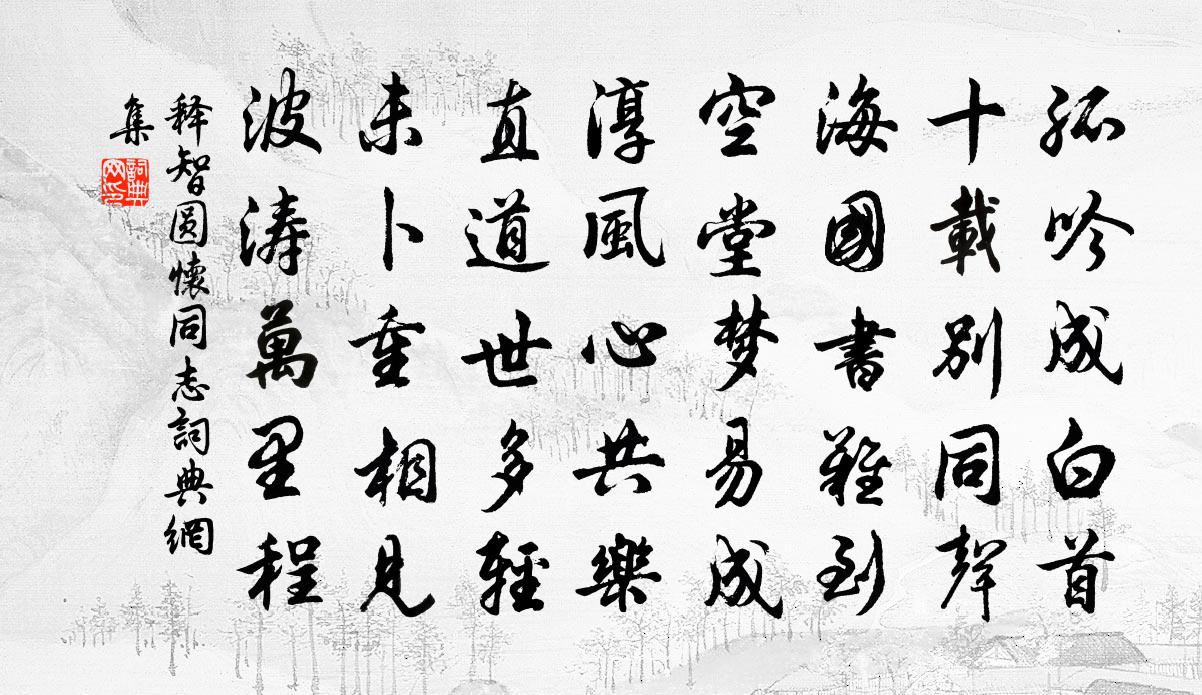 孤吟成白首
十載別同聲
海國書難到
空堂梦易成
淳風心共樂
直道世多輕
未卜重相見
波濤萬里程
释智圆懷同志詞典網
集
詞典網印